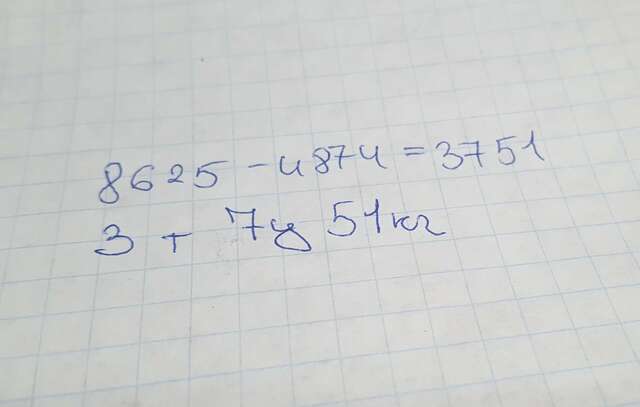 8625 - 4874 = 3751
3 т 7ц 51кг